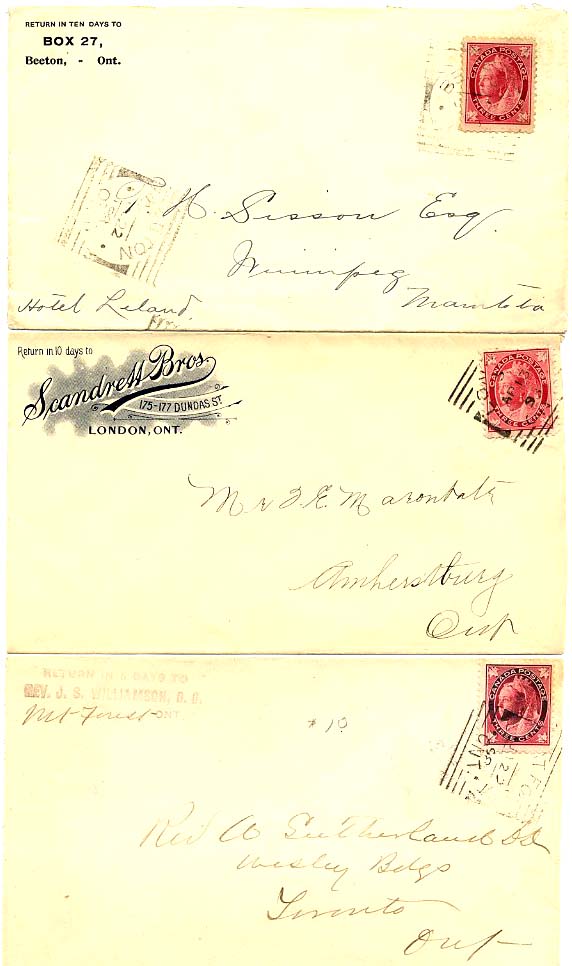 RETURN IN TEN DAYS TO
BOX 27,
Beeton, - Ont.
CANADA POSTAGE
THREE CENTS
H. Sisson Esq.
Winnipeg
Hotel Leland,
Manitoba
Return in 10 days to
Scandrett Bros.
175-177 DUNDAS ST.
LONDON, ONT.
CANADA POSTAGE
THREE CENTS
Mr
Amherstburg
Ont
RETURN IN 5 DAYS TO
REV. J. S. WILLIAMSON, D. D.
Mt Forest ONT.
CANADA POSTAGE
THREE CENTS
10
Rev A Sutherland DD
Wesley Bdgs
Toronto
Ont